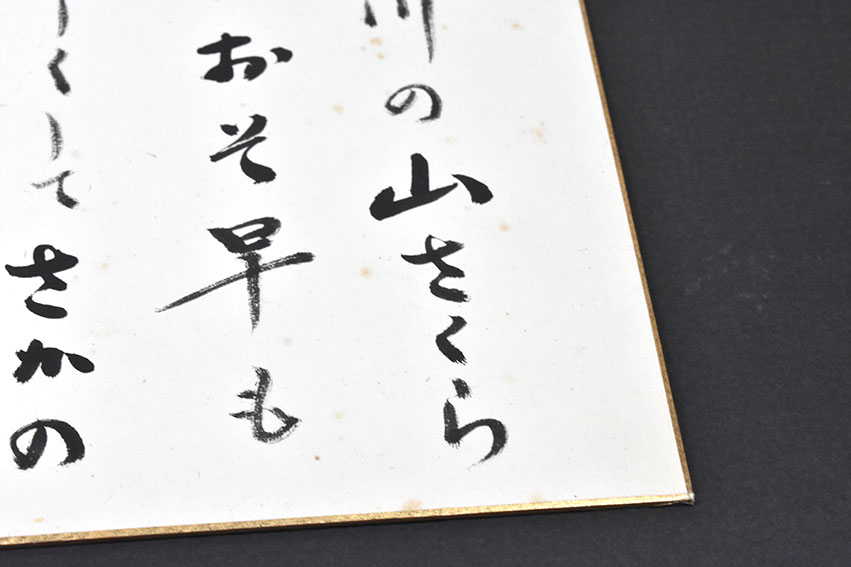 川の山さくら
おそ早も
くしてさかの